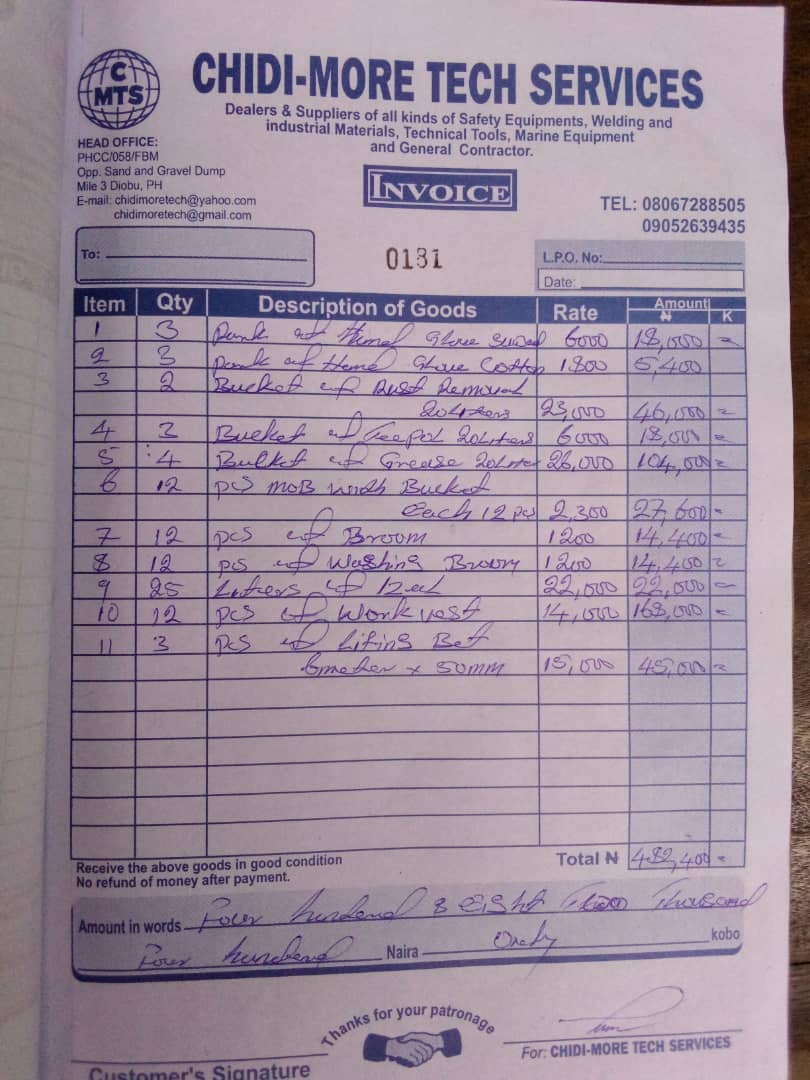 C
MTS
CHIDI-MORE TECH SERVICES
Dealers & Suppliers of all kinds of Safety Equipments, Welding and
industrial Materials, Technical Tools, Marine Equipment
and General Contractor.
HEAD OFFICE:
PHCC/058/FBM
Opp. Sand and Gravel Dump
Mile 3 Diobu, PH
E-mail: chidimoretech@yahoo.com
chidimoretech@gmail.com
INVOICE
TEL: 08067288505
09052639435
To:
0181
L.P.O. No:
Date:
Item Qty Description of Goods Rate Amount ₦ K
1 3 of Hand Glove 6000 18,000 =
2 3 of Hand Glove Cotton 1800 5,400
3 2 Bucket of Rust Removal
20Liters 23,000 46,000 =
4 3 Bucket of Teepol 20Liters 6000 18,000 =
5 4 Bucket of Grease 20Liter 26,000 104,000 =
6 12 pcs MOB with Bucket
each 12 pcs 2,300 27,600 =
7 12 pcs of Broom 1200 14,400 =
8 12 pcs of Washing Broom 1200 14,400 =
9 25 Liters of 22,000 22,000 =
10 12 pcs of Work vest 14,000 168,000 =
11 3 pcs of Lifting Bet
6meter x 50mm 15,000 45,000 =
Receive the above goods in good condition
No refund of money after payment.
Total ₦ 482,400 =
Amount in words Four hundred & Eight Two Thousand
Four hundred Naira Only kobo
Thanks for your patronage
Customer's Signature
For: CHIDI-MORE TECH SERVICES